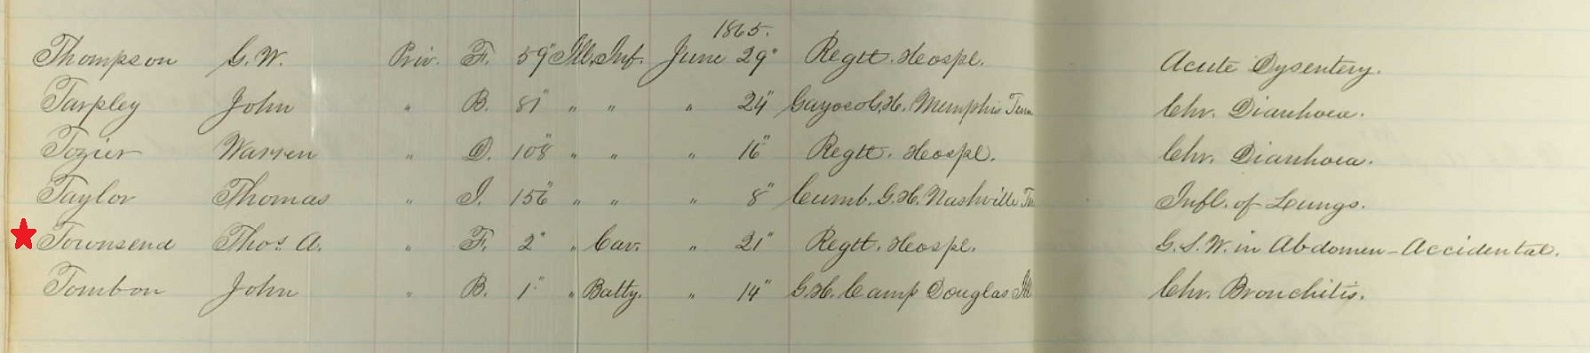 1865.
Thompson G.W. Priv. F. 59" Ill. Inf. June 29" Regtl. Hospl. Acute Dysentery.
Tarpley John " B. 81" " " " 24" Gayoso G.H. Memphis Tenn Chr. Diarrhoea.
Tozier Warren " D. 108" " " " 16" Regtl. Hospl. Chr. Diarrhoea.
Taylor Thomas " I. 156" " " " 8" Cumb. G.H. Nashville Te Infl. of Lungs.
Townsend Thos. A. " F. 2" " Cav. " 21" Regtl. Hospl. G.S.W. in Abdomen - Accidental.
John " B. 1" " Batty. " 14" G.H. Camp Douglas Ill Chr. Bronchitis.